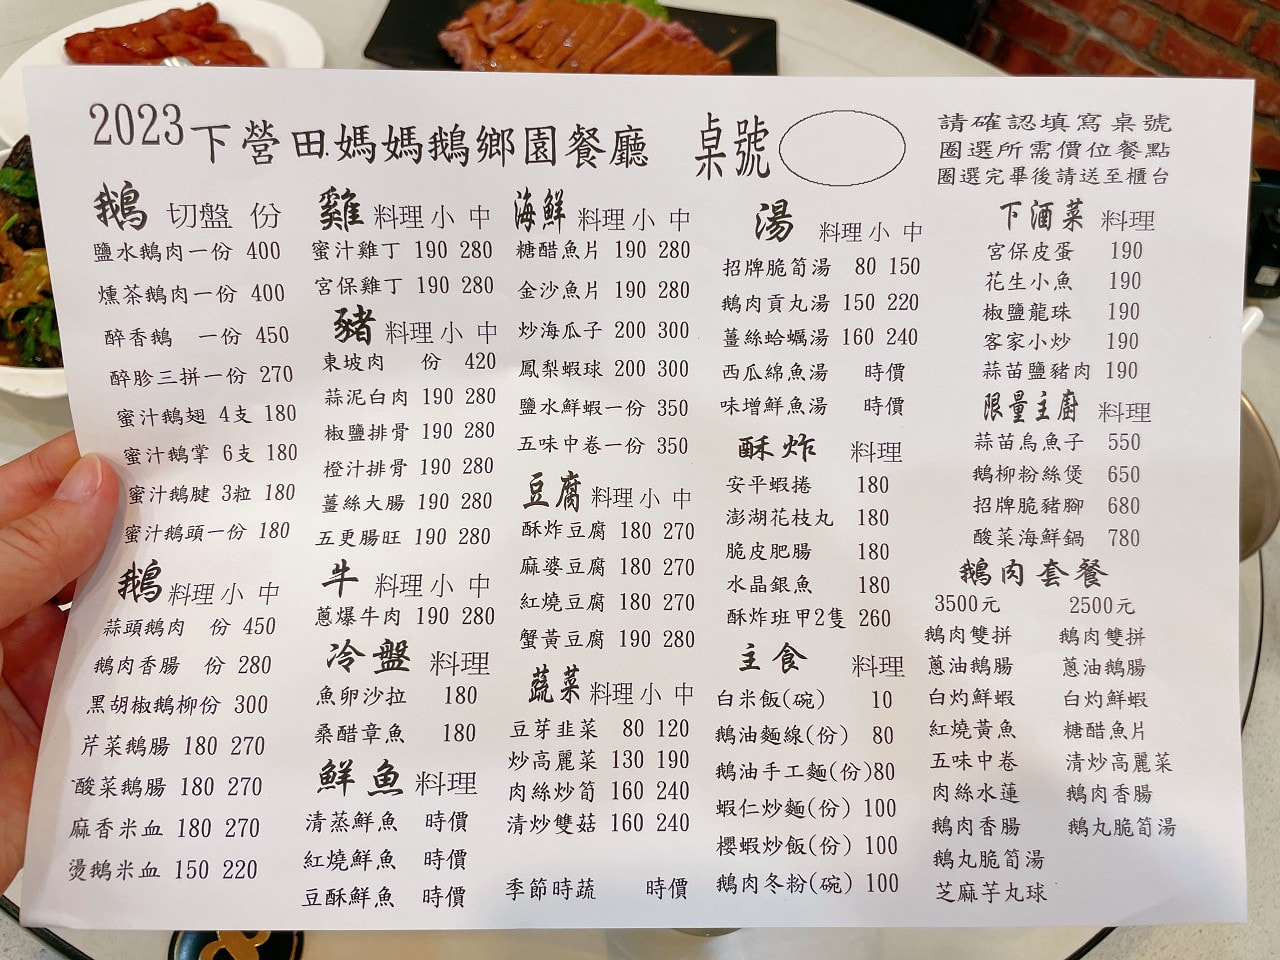 2023下營田媽媽鵝鄉園餐廳 桌號
請確認填寫桌號
圈選所需價位餐點
圈選完畢後請送至櫃台
鵝 切盤 份
鹽水鵝肉一份 400
燻茶鵝肉一份 400
醉香鵝 一份 450
醉胗三拼一份 270
蜜汁鵝翅 4支 180
蜜汁鵝掌 6支 180
蜜汁鵝腱 3粒 180
蜜汁鵝頭一份 180
鵝 料理 小 中
蒜頭鵝肉 份 450
鵝肉香腸 份 280
黑胡椒鵝柳份 300
芹菜鵝腸 180 270
酸菜鵝腸 180 270
麻香米血 180 270
燙鵝米血 150 220
雞 料理 小 中
蜜汁雞丁 190 280
宮保雞丁 190 280
豬 料理 小 中
東坡肉 份 420
蒜泥白肉 190 280
椒鹽排骨 190 280
橙汁排骨 190 280
薑絲大腸 190 280
五更腸旺 190 280
牛 料理 小 中
蔥爆牛肉 190 280
冷盤 料理
魚卵沙拉 180
桑醋章魚 180
鮮魚 料理
清蒸鮮魚 時價
紅燒鮮魚 時價
豆酥鮮魚 時價
海鮮 料理 小 中
糖醋魚片 190 280
金沙魚片 190 280
炒海瓜子 200 300
鳳梨蝦球 200 300
鹽水鮮蝦一份 350
五味中卷一份 350
豆腐 料理 小 中
酥炸豆腐 180 270
麻婆豆腐 180 270
紅燒豆腐 180 270
蟹黃豆腐 190 280
蔬菜 料理 小 中
豆芽韭菜 80 120
炒高麗菜 130 190
肉絲炒筍 160 240
清炒雙菇 160 240
季節時蔬 時價
湯 料理 小 中
招牌脆筍湯 80 150
鵝肉貢丸湯 150 220
薑絲蛤蠣湯 160 240
西瓜綿魚湯 時價
味增鮮魚湯 時價
酥炸 料理
安平蝦捲 180
澎湖花枝丸 180
脆皮肥腸 180
水晶銀魚 180
酥炸班甲2隻 260
主食 料理
白米飯(碗) 10
鵝油麵線(份) 80
鵝油手工麵(份)80
蝦仁炒麵(份) 100
櫻蝦炒飯(份) 100
鵝肉冬粉(碗) 100
下酒菜 料理
宮保皮蛋 190
花生小魚 190
椒鹽龍珠 190
客家小炒 190
蒜苗鹽豬肉 190
限量主廚 料理
蒜苗烏魚子 550
鵝柳粉絲煲 650
招牌脆豬腳 680
酸菜海鮮鍋 780
鵝肉套餐
3500元 2500元
鵝肉雙拼 鵝肉雙拼
蔥油鵝腸 蔥油鵝腸
白灼鮮蝦 白灼鮮蝦
紅燒黃魚 糖醋魚片
五味中卷 清炒高麗菜
肉絲水蓮 鵝肉香腸
鵝肉香腸 鵝丸脆筍湯
鵝丸脆筍湯
芝麻芋丸球